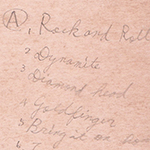 A, Rock and Roll
2 Dynamite
3 Diamond head
4 Goldfinger
5 Bring it on